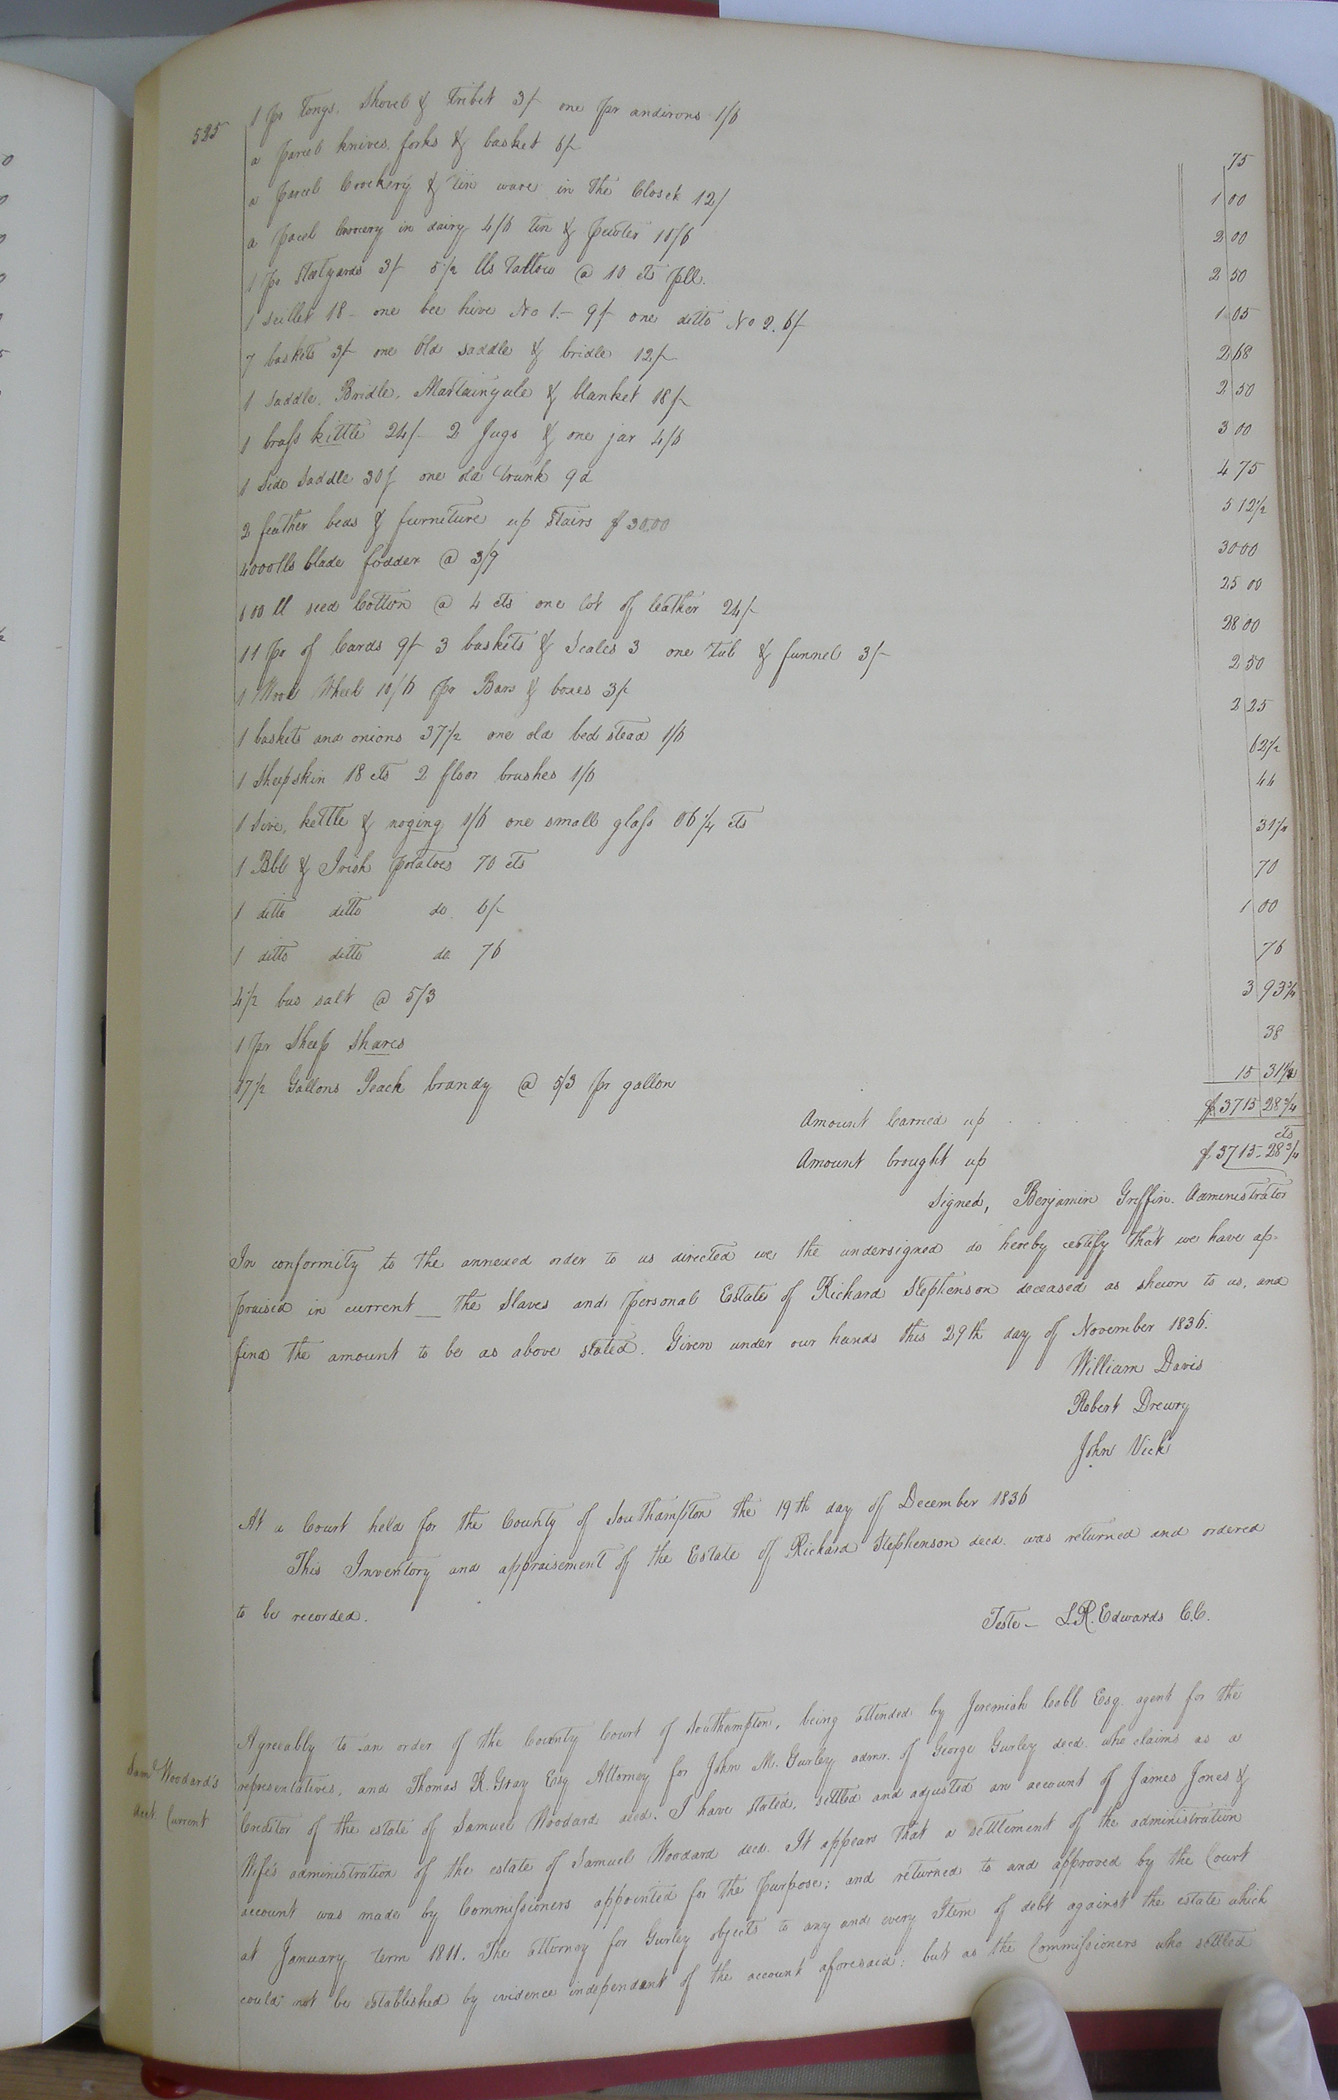 525
1 pr Tongs, Shovel & tribet 3/- one pr andirons 1/6 75
a parcel knives, forks & basket 6/- 1 00
a parcel Crockery & tin ware in the Closet 12/ 2 00
a pacel Crocery in dairy 4/6 tin & pewter 10/6 2 50
1 pr Steelyards 3/- 5 1/2 lls Tallow @ 10 cts pll. 1 05
1 Skillet 18- one bee hive No 1.- 9/- one ditto No 2. 6/- 2 68
7 baskets 3/- one Old saddle & bridle 12/- 2 50
1 saddle, Bridle, Martaingale & blanket 18/- 3 00
1 brass kittle 24/- 2 Jugs & one jar 4/6 4 75
1 Side Saddle 30/ one old trunk 9d 5 12 1/2
2 feather beds & furniture up stairs $ 30.00 30 00
4000lls blade fodder @ 3/9 25 00
600 ll seed Cotton @ 4 cts one lot of leather 24/- 28 00
11 pr of Cards 9/- 3 baskets & Scales 3 one Tub & funnel 3/- 2 50
1 Wool Wheel 10/6 pr Bars & boxes 3/- 2 25
1 baskets and onions 37 1/2 one old bed stead 1/6 62 1/2
1 Sheepskin 18 cts 2 floor brushes 1/6 44
1 Sive, kettle & noging 1/6 one small glass 06 1/4 cts 31 1/4
1 Bbl & Irish potatoes 70 cts 70
1 ditto ditto do 6/- 1 00
1 ditto ditto do 76 76
4 1/2 bus salt @ 5/3 3 93 3/4
1 pr Sheep shares 38
17 1/2 Gallons Peach brandy @ 5/3 pr gallon 15 31 1/4
Amount Carried up $ 3715 28 3/4
Amount brought up $ 3715.28 3/4 cts
Signed, Benjamin Griffin. Administrator
In conformity to the annexed order to us directed we the undersigned do hereby certify that we have ap-
praised in current __ the Slaves and personal Estate of Richard Stephenson deceased as shewn to us, and
find the amount to be as above stated. Given under our hands this 29th day of November 1836.
William Davis
Robert Drewry
John Vick
At a Court held for the County of Southampton the 19th day of December 1836
This Inventory and appraisement of the Estate of Richard Stephenson decd. was returned and ordered
to be recorded.
Teste- L.R. Edwards C.C.
Saml. Woodard's
acct Current
Agreeably to an order of the County Court of Southampton, being attended by Jeremiah Cobb Esq. agent for the
representatives, and Thomas R. Gray Esq Attorney for John M. Gurley admr. of George Gurley decd. who claims as a
Creditor of the estate of Samuel Woodard decd. I have stated, settled and adjusted an account of James Jones &
Wife's administration of the estate of Samuel Woodard decd. It appears that a settlement of the administration
account was made by Commissioners appointed for the purpose; and returned to and approved by the Court
at January term 1811. The attorney for Gurley objects to any and every Item of debt against the estate which
could not be established by evidence independant of the account aforesaid; but as the Commissioners who settled